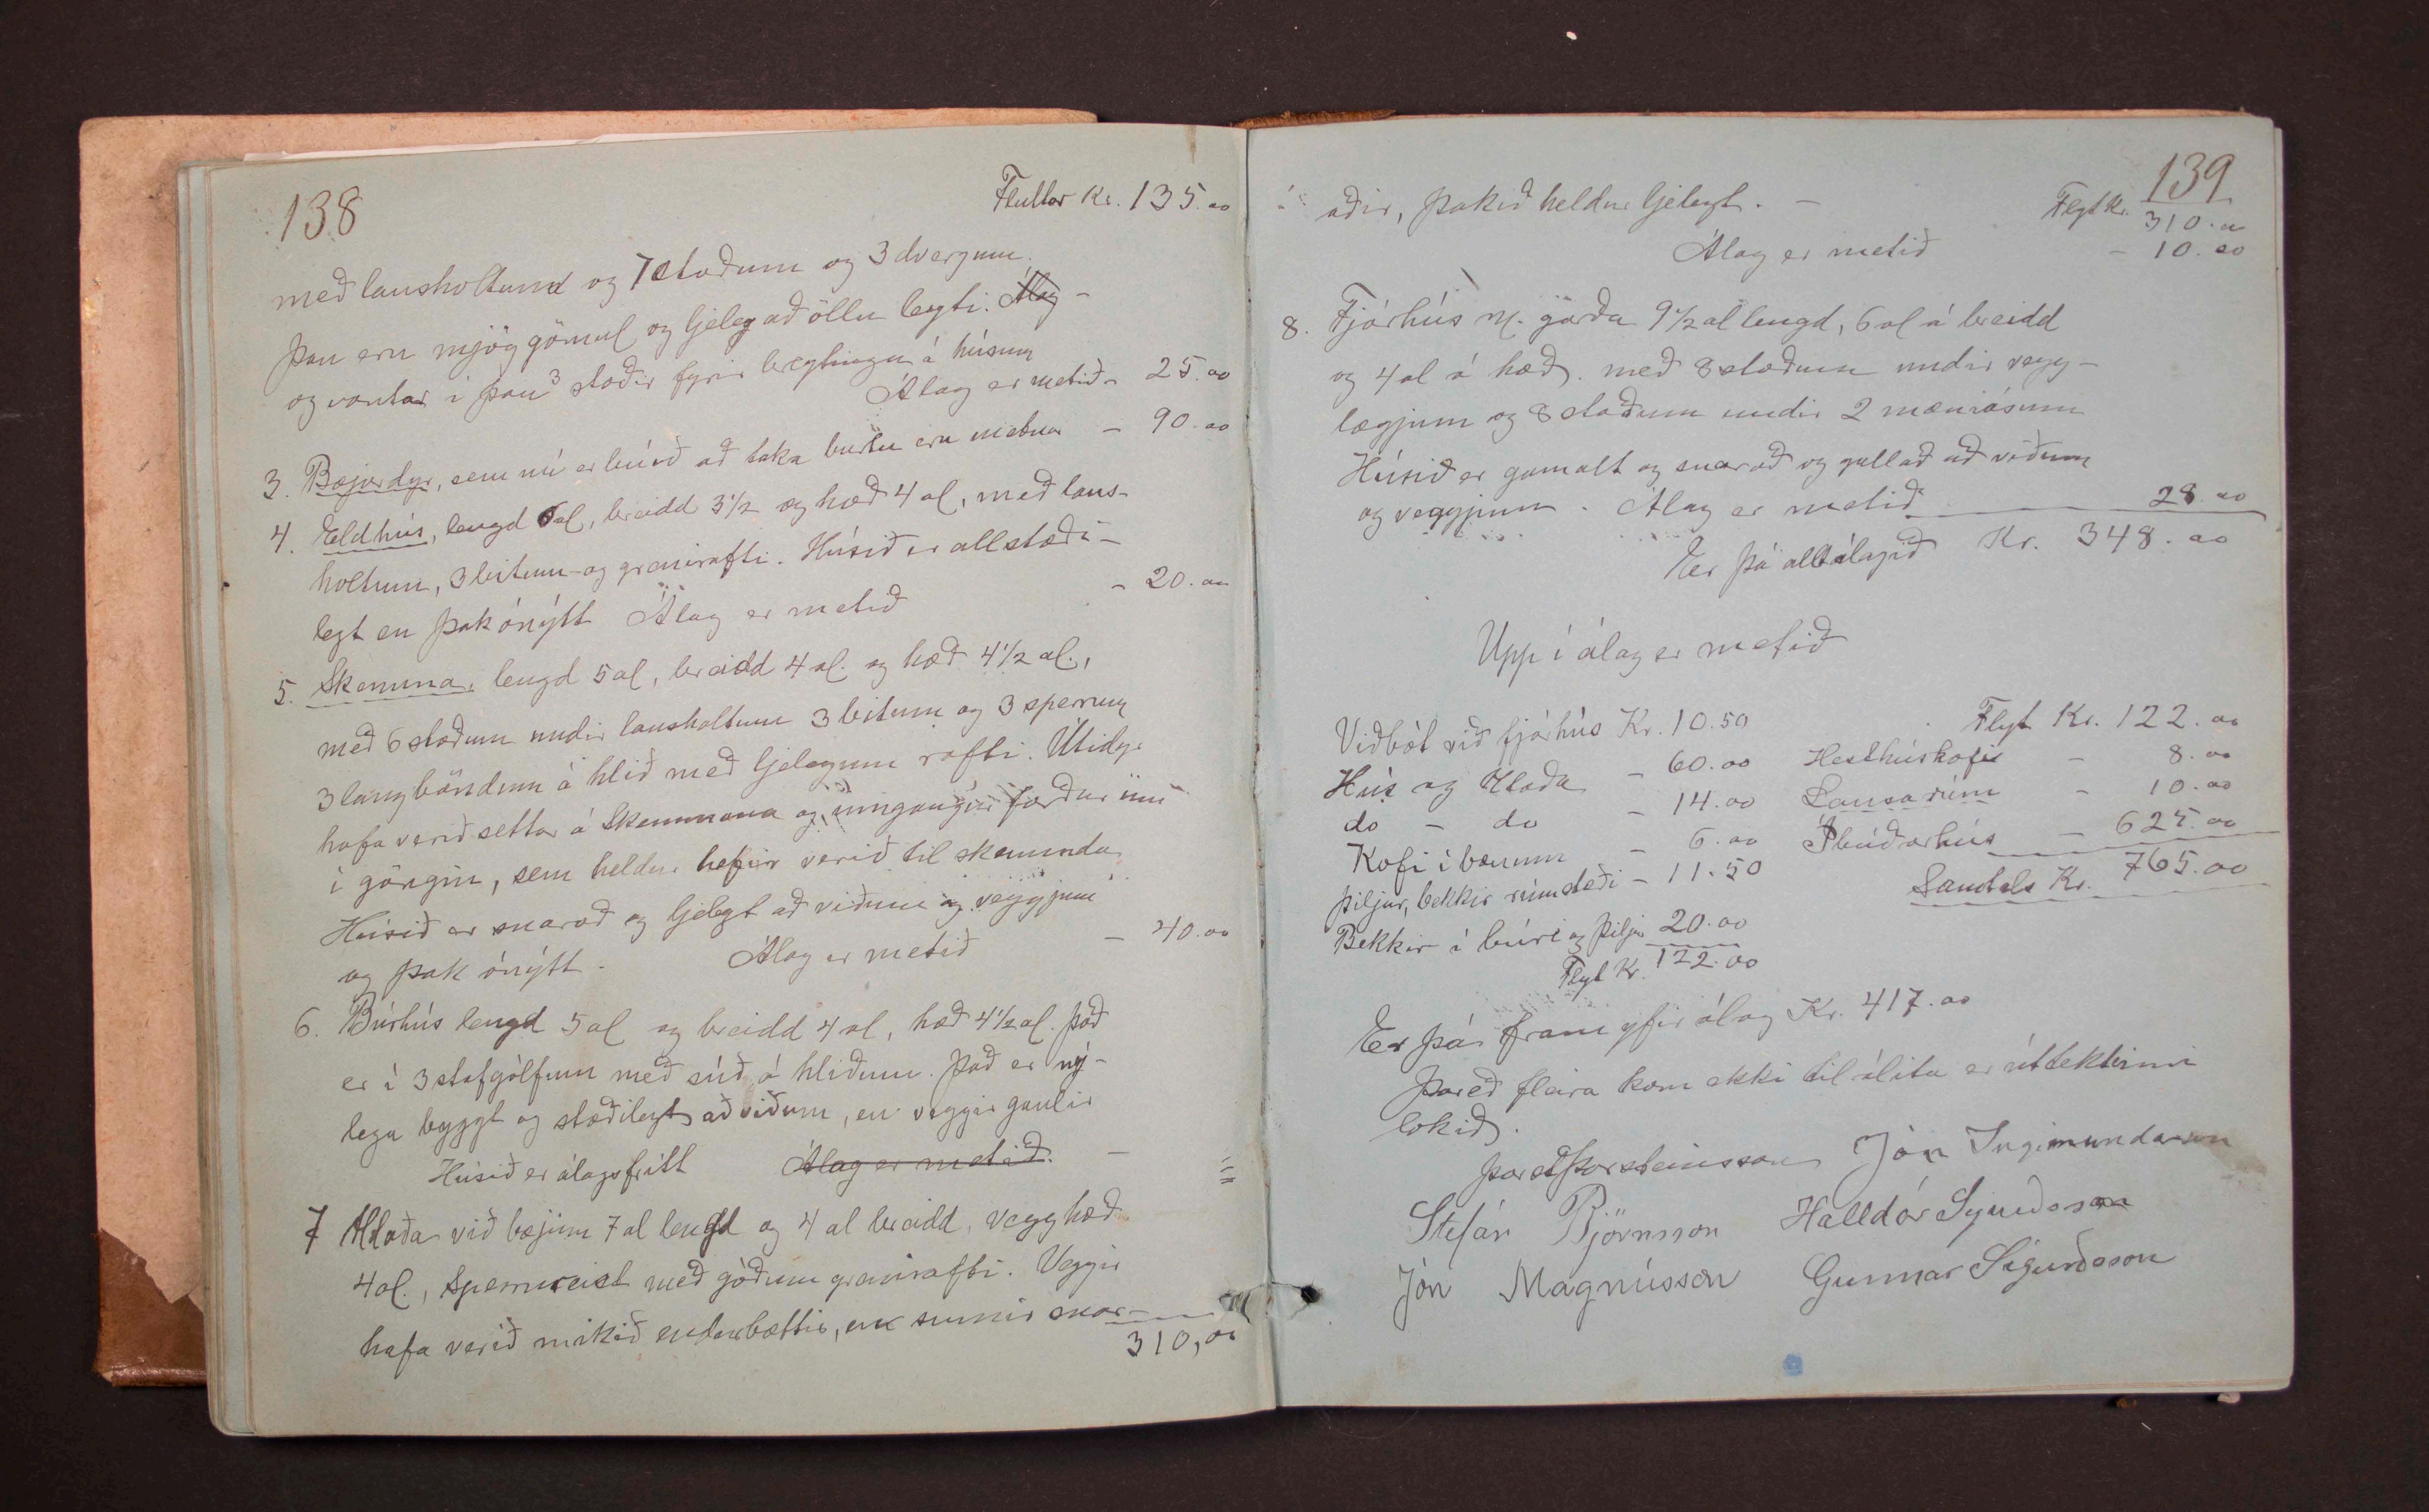 138
Fluttar Kr. 135.00
með lausholtum og 7 stoðum og 3 dvergum.
Þau eru mjög gömul og ljeleg að öllu leyti. Álag -
og vantar í þau 3 stoðir fyrir breytingu á húsum
Álag er metið - 25.00
3. Bæjardyr, sem nú er búið að taka burtu eru metnar - 90.00
4. Eldhús, lengd 6 al, breidd 3 1/2 og hæð 4 al, með laus-
holtum, 3 bitum og grenirafti. Húsið er allstæði-
legt en þak ónýtt Álag er metið - 20.00
5. Skemma, lengd 5 al, breidd 4 al. og hæð 4 1/2 al.,
með 6 stoðum undir lausholtum 3 bitum og 3 sperrum
3 langböndum á hlið með ljelegum rafti. Útidyr
hafa verið settar á Skemmuna og inngangur færður inn
í göngin, sem heldur hefir verið til skemmda
Húsið er snarað og ljelegt að viðum og veggjum
og þak ónýtt. Álag er metið - 40.00
6. Búrhús lengd 5 al og breidd 4 al, hæð 4 1/2 al. það
er í 3 stafgólfum með súð á hliðum. Það er ný-
lega byggt og stæðilegt að viðum, en veggir gamlir
Húsið er álagsfrítt Álag er metið. - "
7 Hlaða við bæjinn 7 al lengd og 4 al breidd, vegghæð
4 al., sperrureist með góðum grenirafti. Veggir
hafa verið mikið endurbættir, en sumir snar-
310,00
139
aðir, þakið heldur ljelegt. -
Flyt Kr. 310.00
Álag er metið - 10.00
8. Fjárhús m. garða 9 1/2 al lengd, 6 al á breidd
og 4 al á hæð. með 8 stoðum undir vegg-
lægjum og 8 stoðum undir 2 mæniásum
Húsið er gamalt og snarað og gallað að viðum
og veggjum. Álag er metið 28.00
Er þá allt álagið Kr. 348.00
Upp í álag er metið
Viðbót við fjárhús Kr. 10.50
Hús og Hlaða - 60.00
do - do - 14.00
Kofi í bænum - 6.00
Þiljur, bekkir rúmstæði - 11.50
Bekkir í búri og þiljur 20.00
Flyt Kr. 122.00
Flyt Kr. 122.00
Hesthúskofi - 8.00
Lausarúm - 10.00
Íbúðarhús - 625.00
Samtals Kr. 765.00
Er þá fram yfir álag Kr. 417.00
Þareð fleira kom ekki til álita er úttektinni
lokið.
Þorst Þorsteinsson Jón Ingimundarson
Stefán Björnsson Halldór Sigurðsson
Jón Magnússon Gunnar Sigurðsson